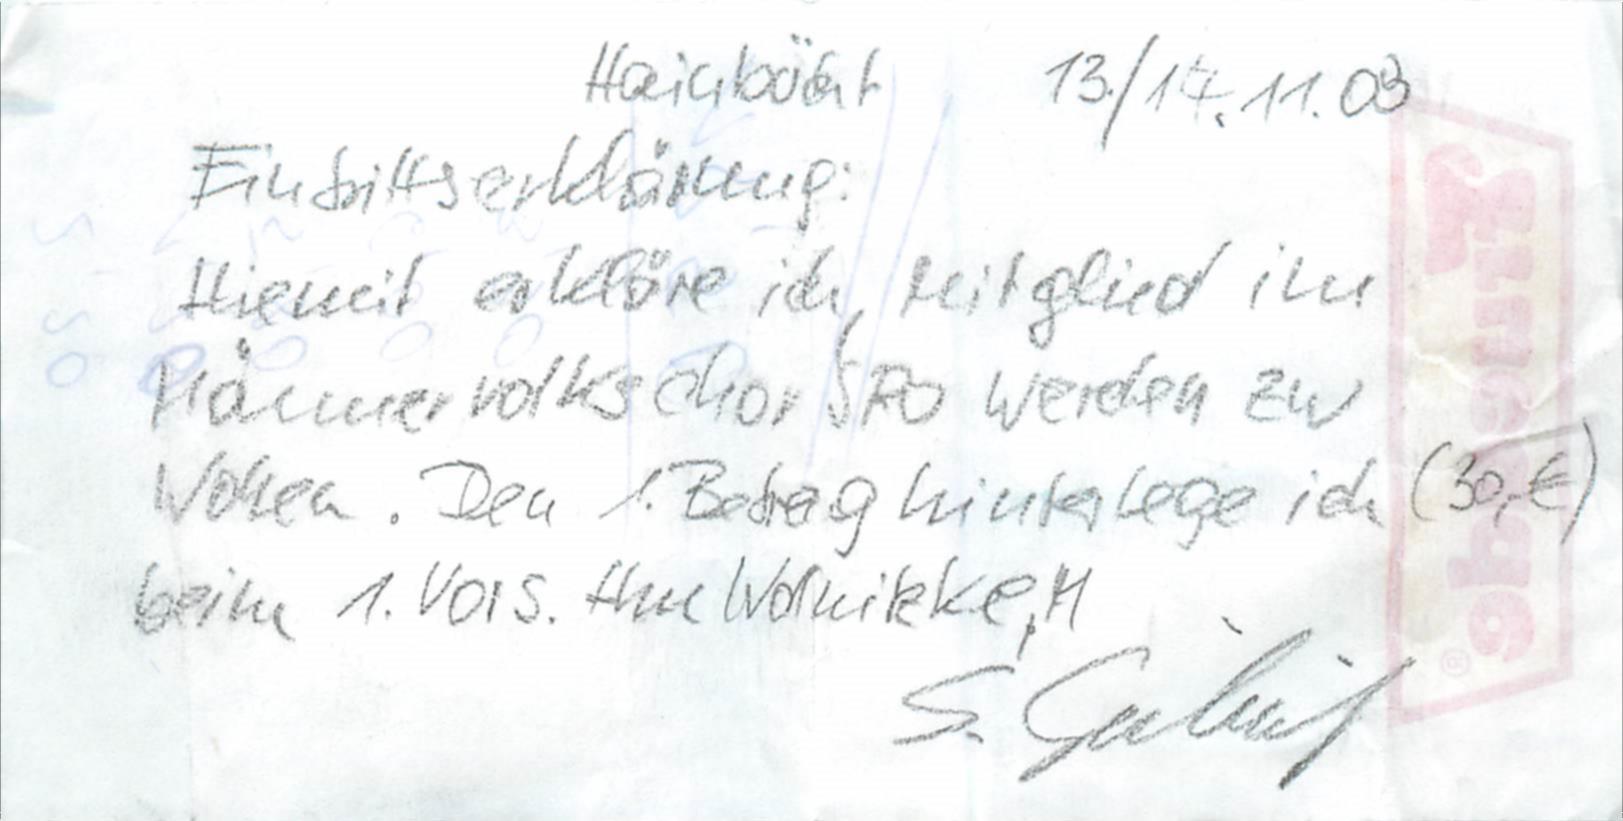 Hainbücht 13./14.11.03
Eintrittserklärung:
Hiemit erkläre ich, Mitglied im
Männervolkschor SPO werden zu
Wollen. Den 1. Betrag hinterlege ich (30,-€)
beim 1. Vors. Hrn Wornikke, M
S.